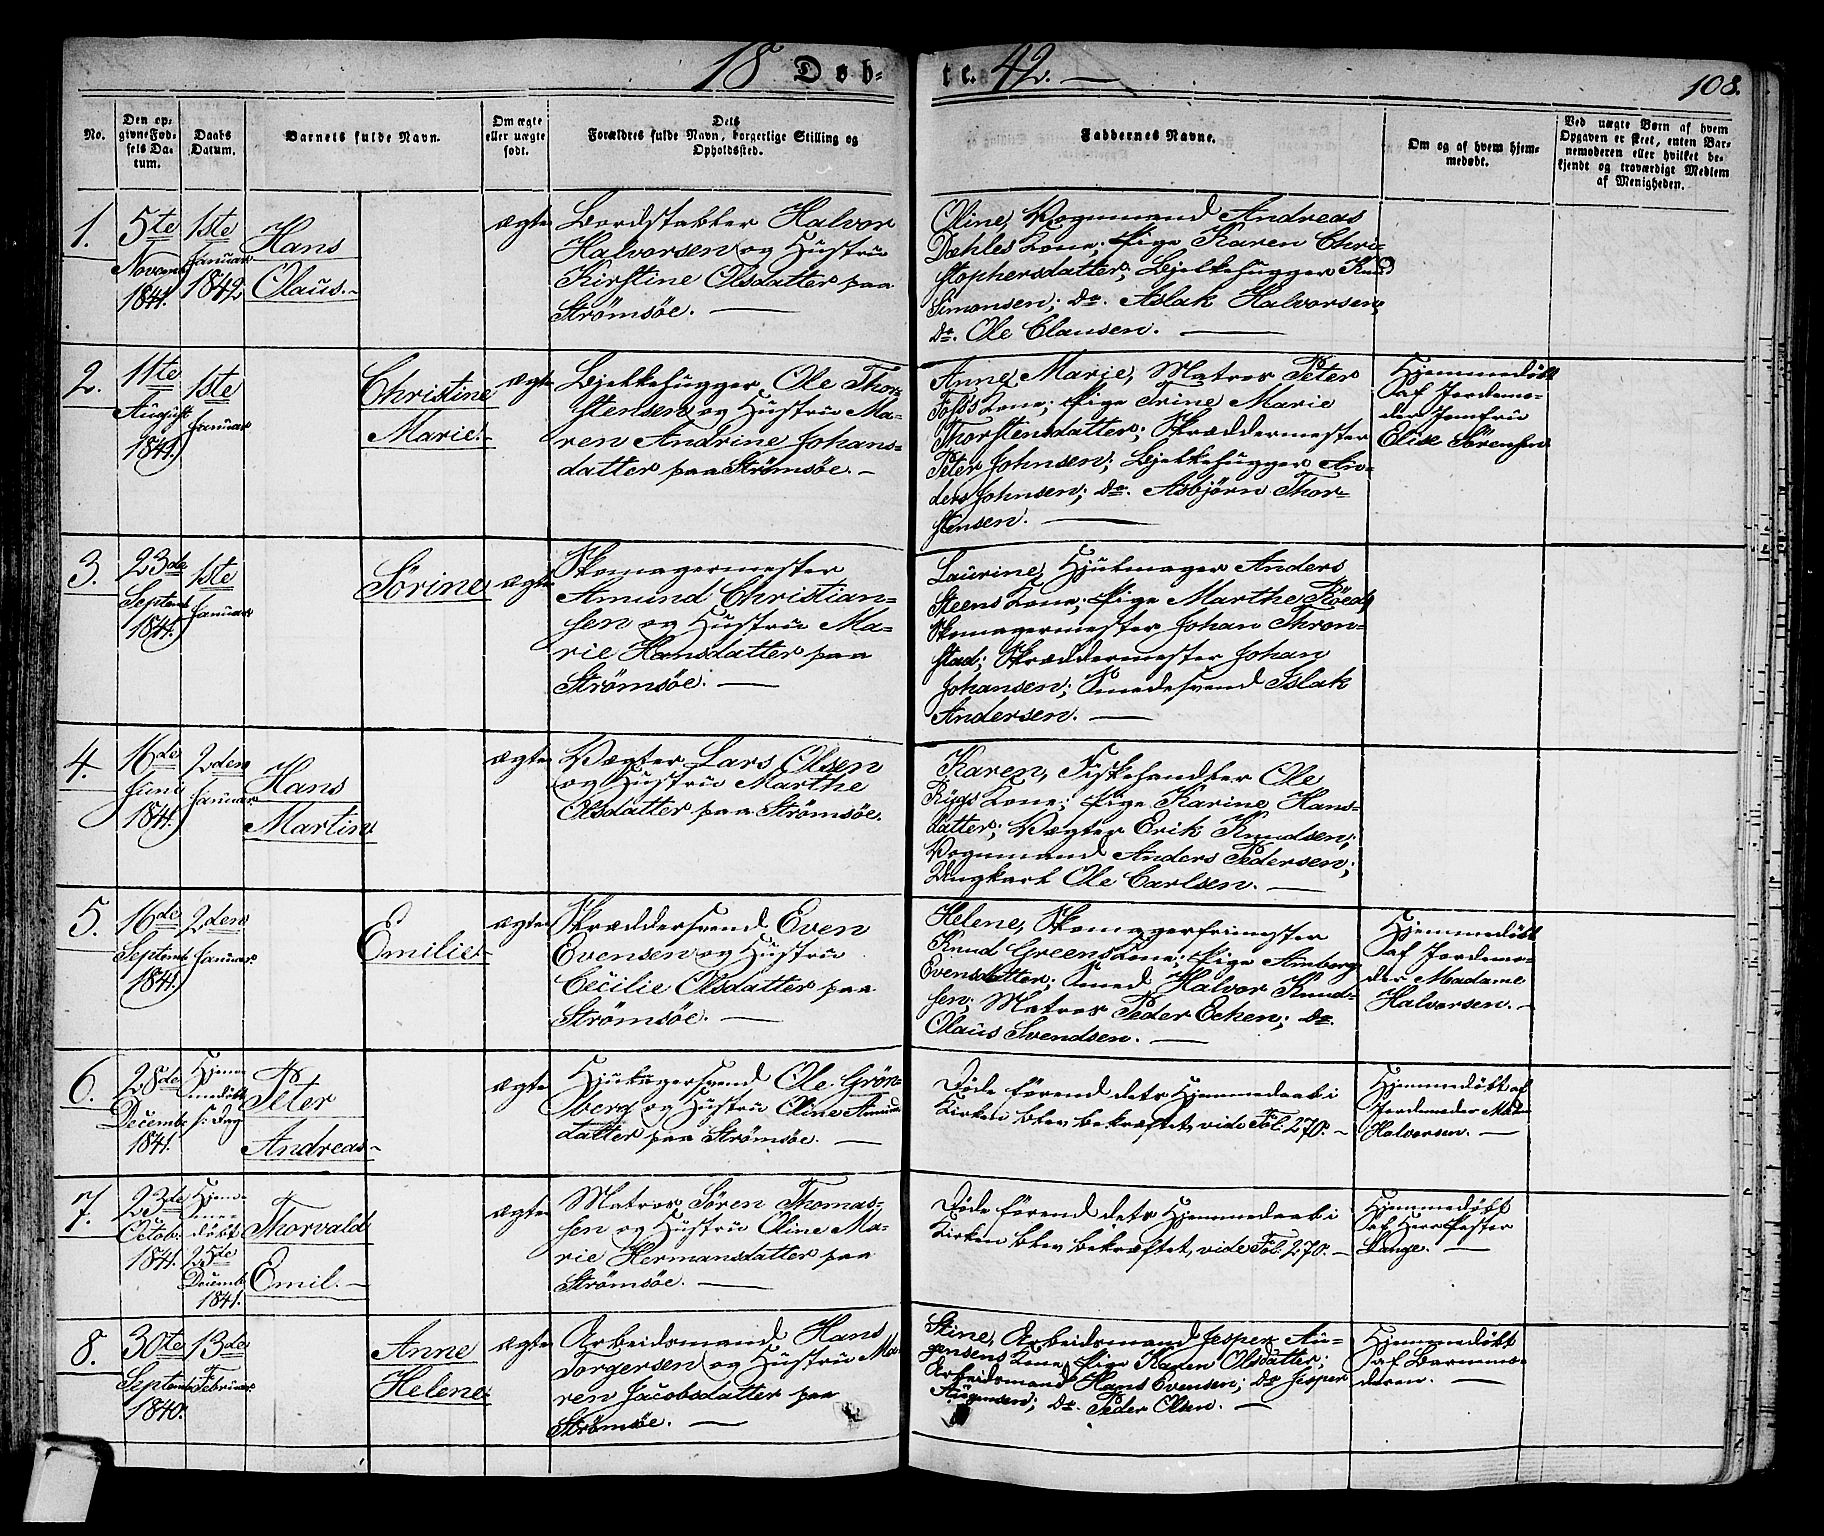 18 Døb-
te. 42.
108.
No.
Den op-
givne Fød-
sels Da-
tum.
Daabs
Datum.
Barnets fulde Navn.
Om ægte
eller uægte
født.
Dets
Forældres fulde Navn, borgerlige Stilling og
Opholdssted.
Faddernes Navne.
Om og af hvem hjem-
medøbt.
Ved uægte Børn af hvem
Opgaven er skeet, enten Bar-
nemoderen eller hvilket be-
kjendt og troværdigt Medlem
af Menigheden.
1.
5te
Novemb.
1841.
1ste
Januar
1842
Hans
Olaus.
ægte
Bordstabler Halvor
Halvorsen og Hustru
Kirstine Olsdatter paa
Strömsöe.
Oline, Vognmand Andreas
Dahles Kone; Pige Karen Chri-
stophersdatter; Bjelkehugger Knud
Simonsen; do. Aslak Halvorsen;
do. Ole Clausen.
2.
11te
August
1841.
1ste
Januar
Christine
Marie.
ægte
Bjelkehugger Ole Thor-
stensen og Hustru Ma-
ren Andrine Johans-
datter paa Strömsöe.
Anne Marie, Matros Peter
Foss's Kone; Pige Trine Marie
Thorstensdatter; Skræddermester
Peter Johnsen; Bjelkehugger An-
ders Johnsen; do. Asbjörn Thor-
stensen.
Hjemmedöbt
af Jordemo-
der Jomfru
Elise Sörensen
3.
23de
Septemb.
1841.
1ste
Januar
Sörine
ægte
Skomagermester
Amund Christian-
sen og Hustru Ma-
rie Hansdatter paa
Strömsöe.
Laurine, Hjulmager Anders
Steens Kone; Pige Marthe Röed;
Skomagermester Johan Thron-
stad; Skræddermester Johan
Johansen; Smedesvend Islak
Andersen.
4.
16de
Juni
1841.
2den
Januar
Hans
Martin
ægte
Vægter Lars Olsen
og Hustru Marthe
Olsdatter paa Strömsöe.
Karen, Fiskehandler Ole
Rygs Kone; Pige Karine Hans-
datter; Vægter Erik Knudsen;
Vognmand Anders Pedersen;
Ungkarl Ole Carlsen.
5.
16de
Septemb.
1841.
2den
Januar.
Emilie
ægte
Skræddersvend Even
Evensen og Hustru
Cecilie Olsdatter paa
Strömsöe.
Helene, Skomagerfrimester
Knud Greens Kone; Pige Amborg
Evensdatter; Smed Halvor Knud-
sen; Matros Peder Ecken; do.
Olaus Svendsen.
Hjemmedöbt
af Jordemo-
der Madame
Halvorsen.
6.
28de
Decemb.
1841.
Hjem-
medöbt
s. Dag
Peter
Andreas
ægte
Hjulmagersvend Ole Grön-
berg og Hustru Oline Amunds-
datter paa Strömsöe.
Döde förend dets Hjemmedaab i
Kirken blev bekræftet, vide Fol. 270.
Hjemmedöbt af
Jordemoder Mad.
Halvorsen.
7.
23de
Octob.
1841.
Hjem-
me-
döbt
25de
Decemb.
1841.
Thorvald
Emil.
ægte
Matros Sören Thomas-
sen og Hustru Oline Ma-
rie Hermansdatter paa
Strömsöe.
Döde förend dets Hjemmedaab i
Kirken blev bekræftet, vide Fol. 270.
Hjemmedöbt
af Herr Pastor
Lange.
8.
30te
Septemb.
1840.
13de
Februar
Anne
Helene
ægte
Arbeidsmand Hans
Torgersen og Hustru Ma-
ren Jacobsdatter paa
Strömsöe.
Stine, Arbeidsmand Jesper Au-
gensens Kone; Pige Karen Olsdatter;
Arbeidsmand Hans Evensen; do Jesper
Augensen; do. Peder Olsen.
Hjemmedöbt
af Barnemo-
deren.